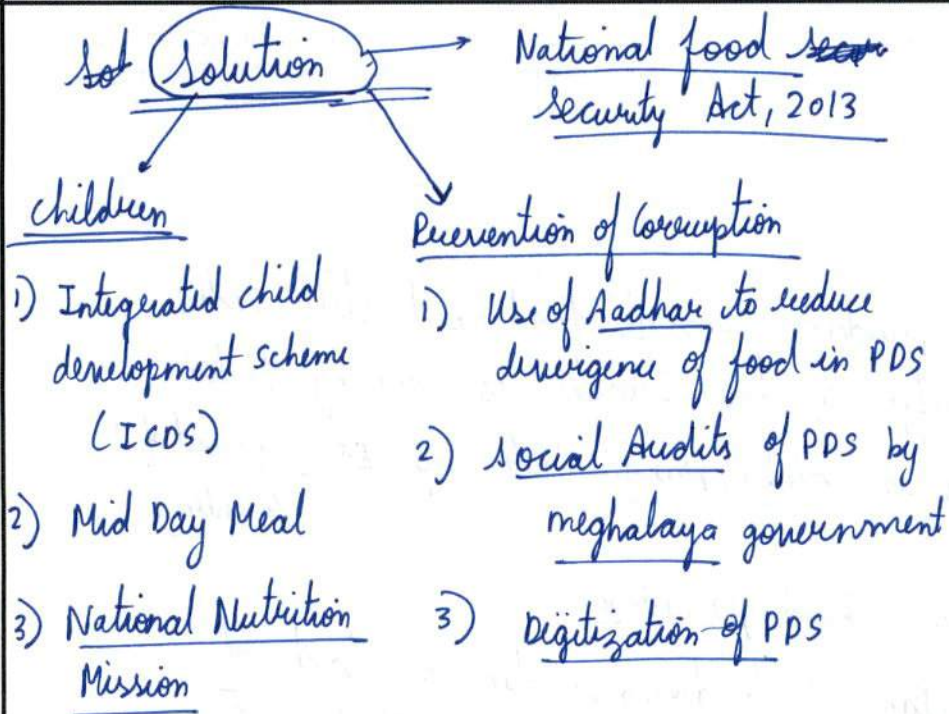 Sol Solution
National food secu
security Act, 2013
children
1) Integrated child
development scheme
(ICDS)
2) Mid Day Meal
3) National Nutrition
Mission
Prevention of Corruption
1) Use of Aadhar to reduce
divergence of food in PDS
2) Social Audits of PDS by
meghalaya government
3) Digitization of PDS